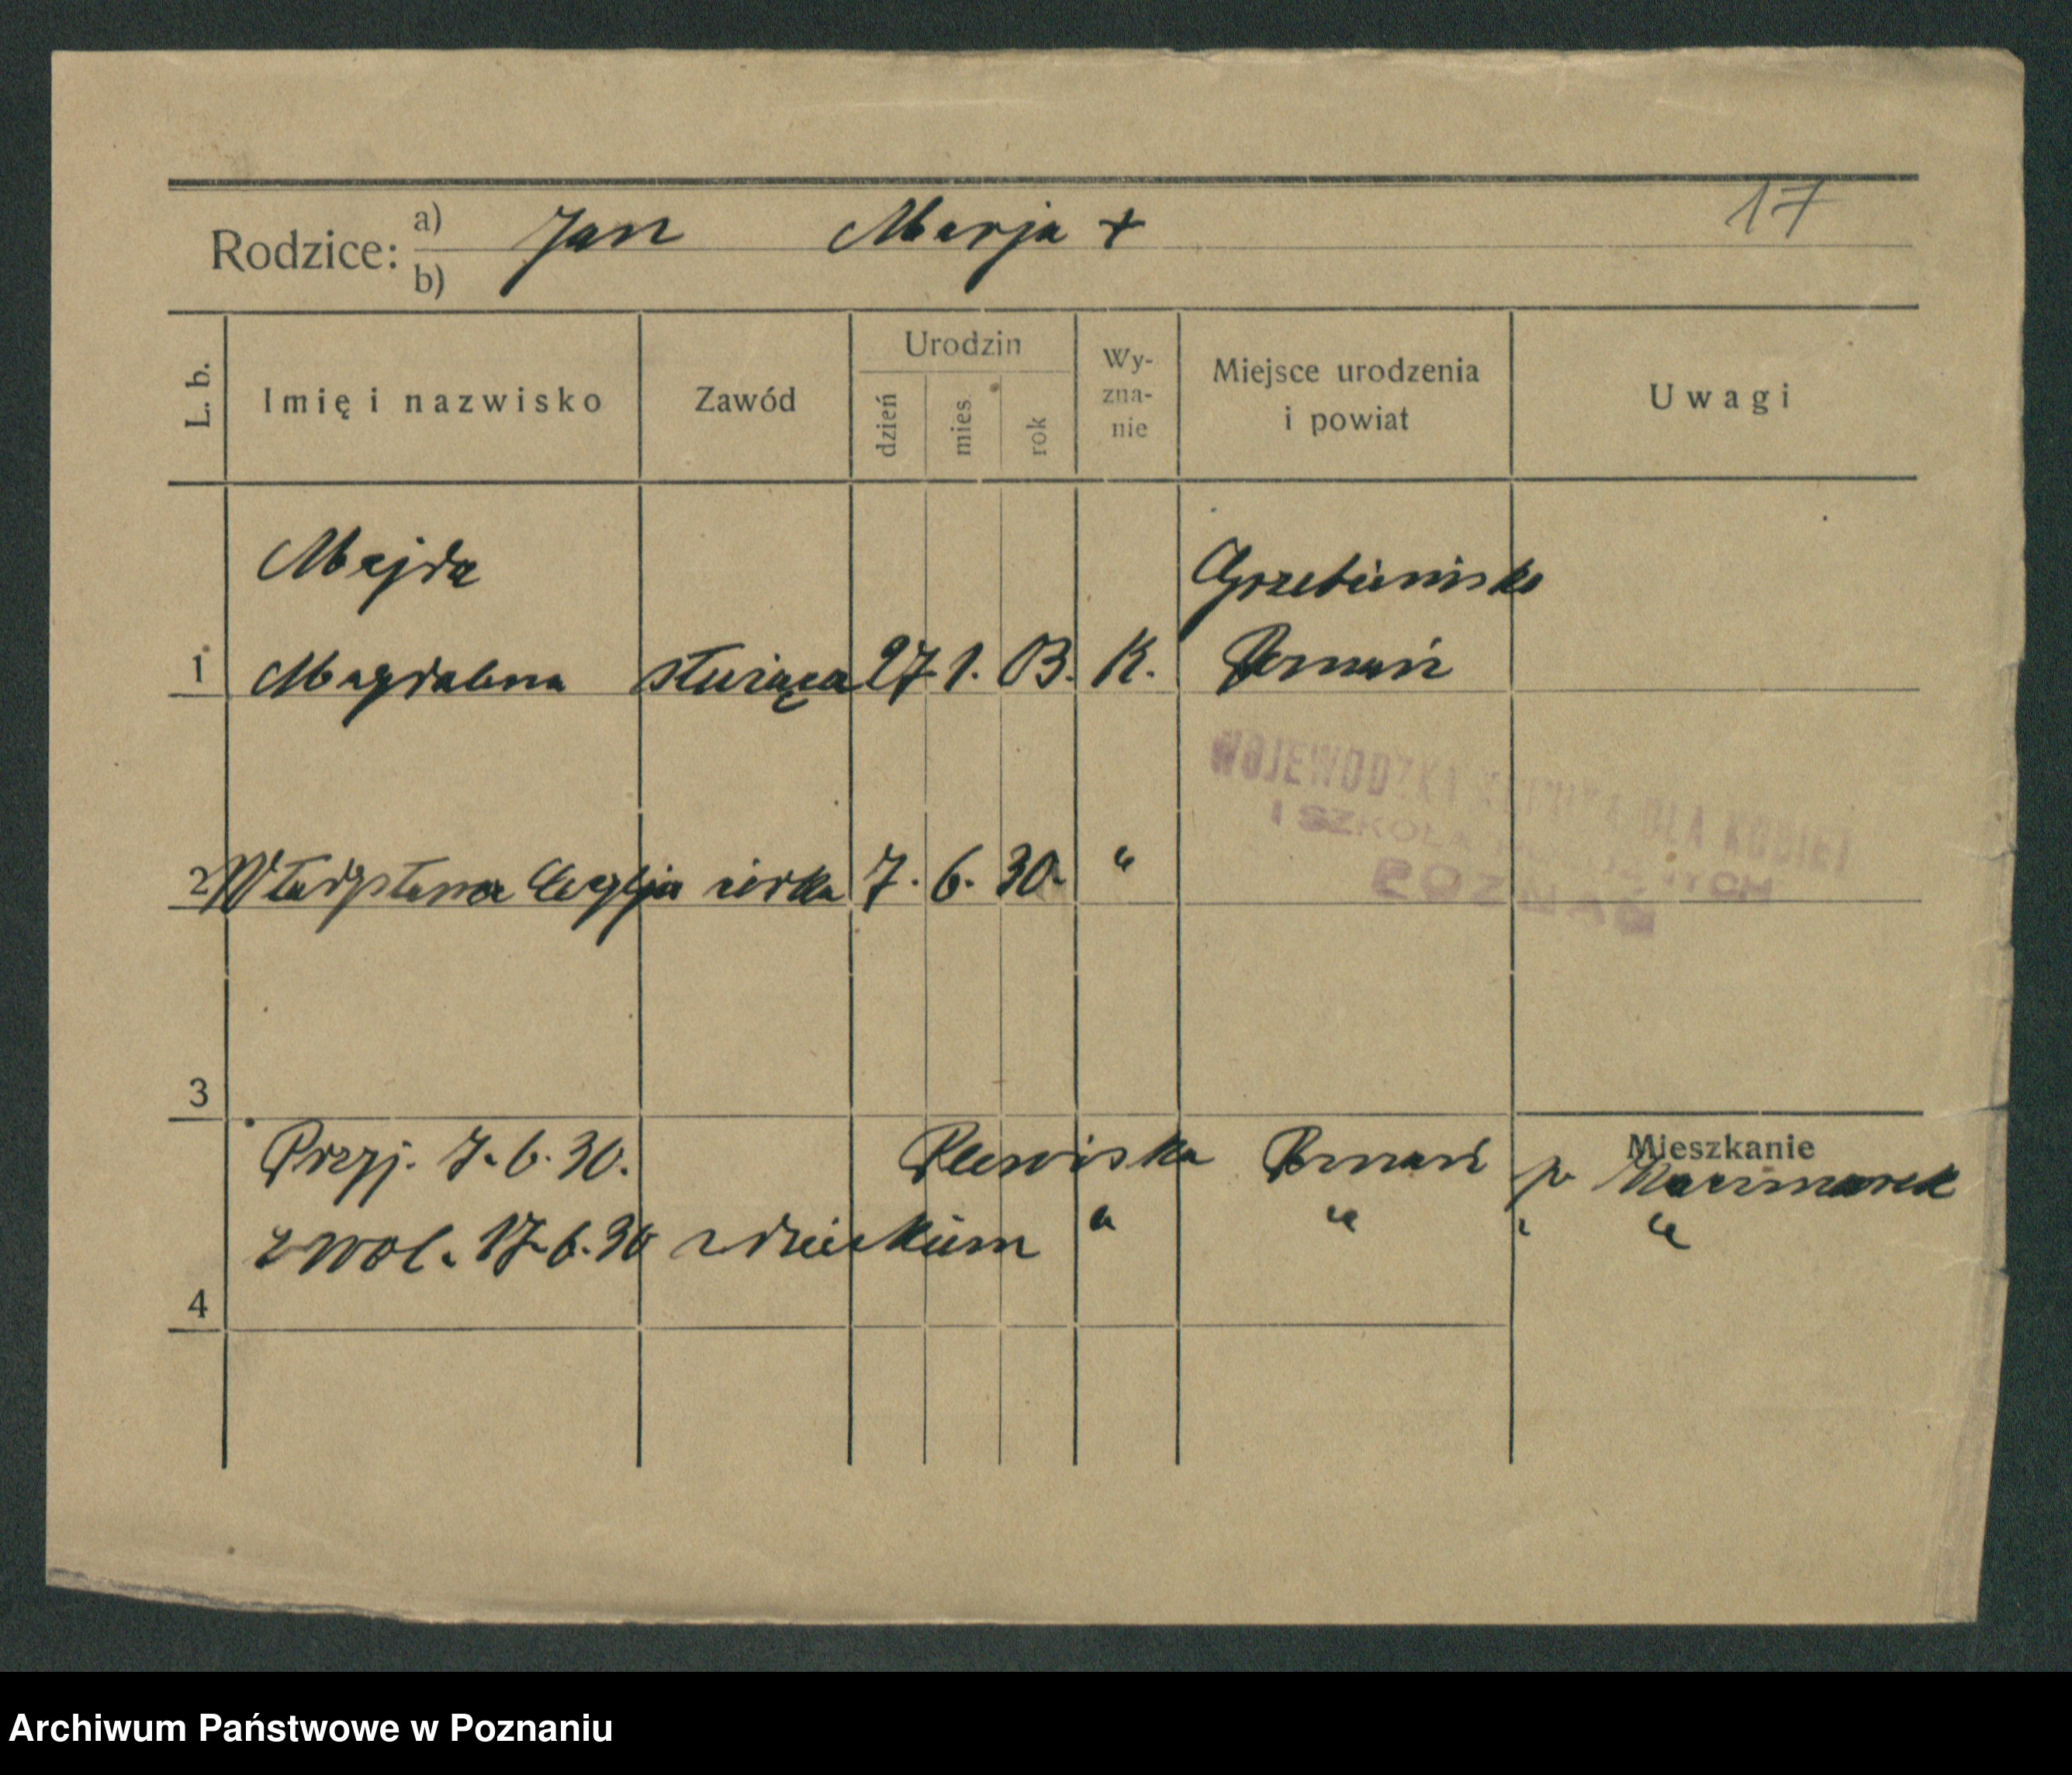 17
Rodzice: a) Jan Marja +
b)
L. b. Imię i nazwisko Zawód Urodzin dzień mies. rok Wy-zna-nie Miejsce urodzenia i powiat Uwagi
Majda Grzebienisko
1 Magdalena służąca 27. 1. 03. K. Poznań
WOJEWÓDZKA KLINIKA DLA KOBIET
I SZKOŁA POŁOŻNYCH
POZNAŃ
2 Władysława córka 7. 6. 30. "
3
Mieszkanie
Przyj. 7. 6. 30. Plewiska Poznań p. Kaczmarek
zwol. 17. 6. 30 z dzieckiem " " " "
4
Archiwum Państwowe w Poznaniu